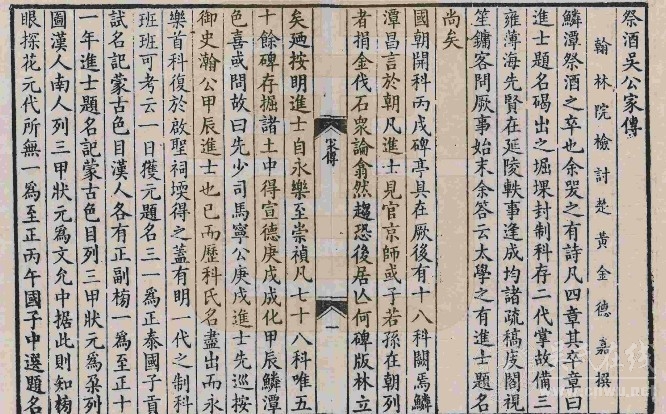 祭酒吳公家傳
翰林院檢討楚黃金德嘉撰
鱗潭祭酒之卒也余哭之有詩凡四章其卒章曰
進士題名碣出之堀堁封制科存二代掌故備三
雍薄海先賢在延陵軼事逢成均諸疏稿庋閣視
笙鏞客問厥事始末余答云太學之有進士題名
尚矣
國朝開科丙戌碑亭具在厥後有十八科闕焉鱗
潭昌言於朝凡進士見官京師或子若孫在朝列
者捐金伐石眾論翕然趨恐後居亾何碑版林立
矣廼按明進士自永樂至崇禎凡七十八科唯五
十餘碑存掘諸土中得宣德庚戌成化甲辰鱗潭
色喜或問故曰先少司馬寧公庚戌進士先巡按
御史瀚公甲辰進士也已而歷科氏名盡出而永
樂首科復於啟聖祠堧得之蓋有明一代之制科
班班可考云一日獲元題名三一為正泰國子貢
試名記蒙古色目漢人各有正副榜一為至正十
一年進士題名記蒙古色目列三甲狀元為朶列
圖漢人南人列三甲狀元為文允中据此則知榜
眼探花元代所無一為至正丙午國子中選題名
家傳
一